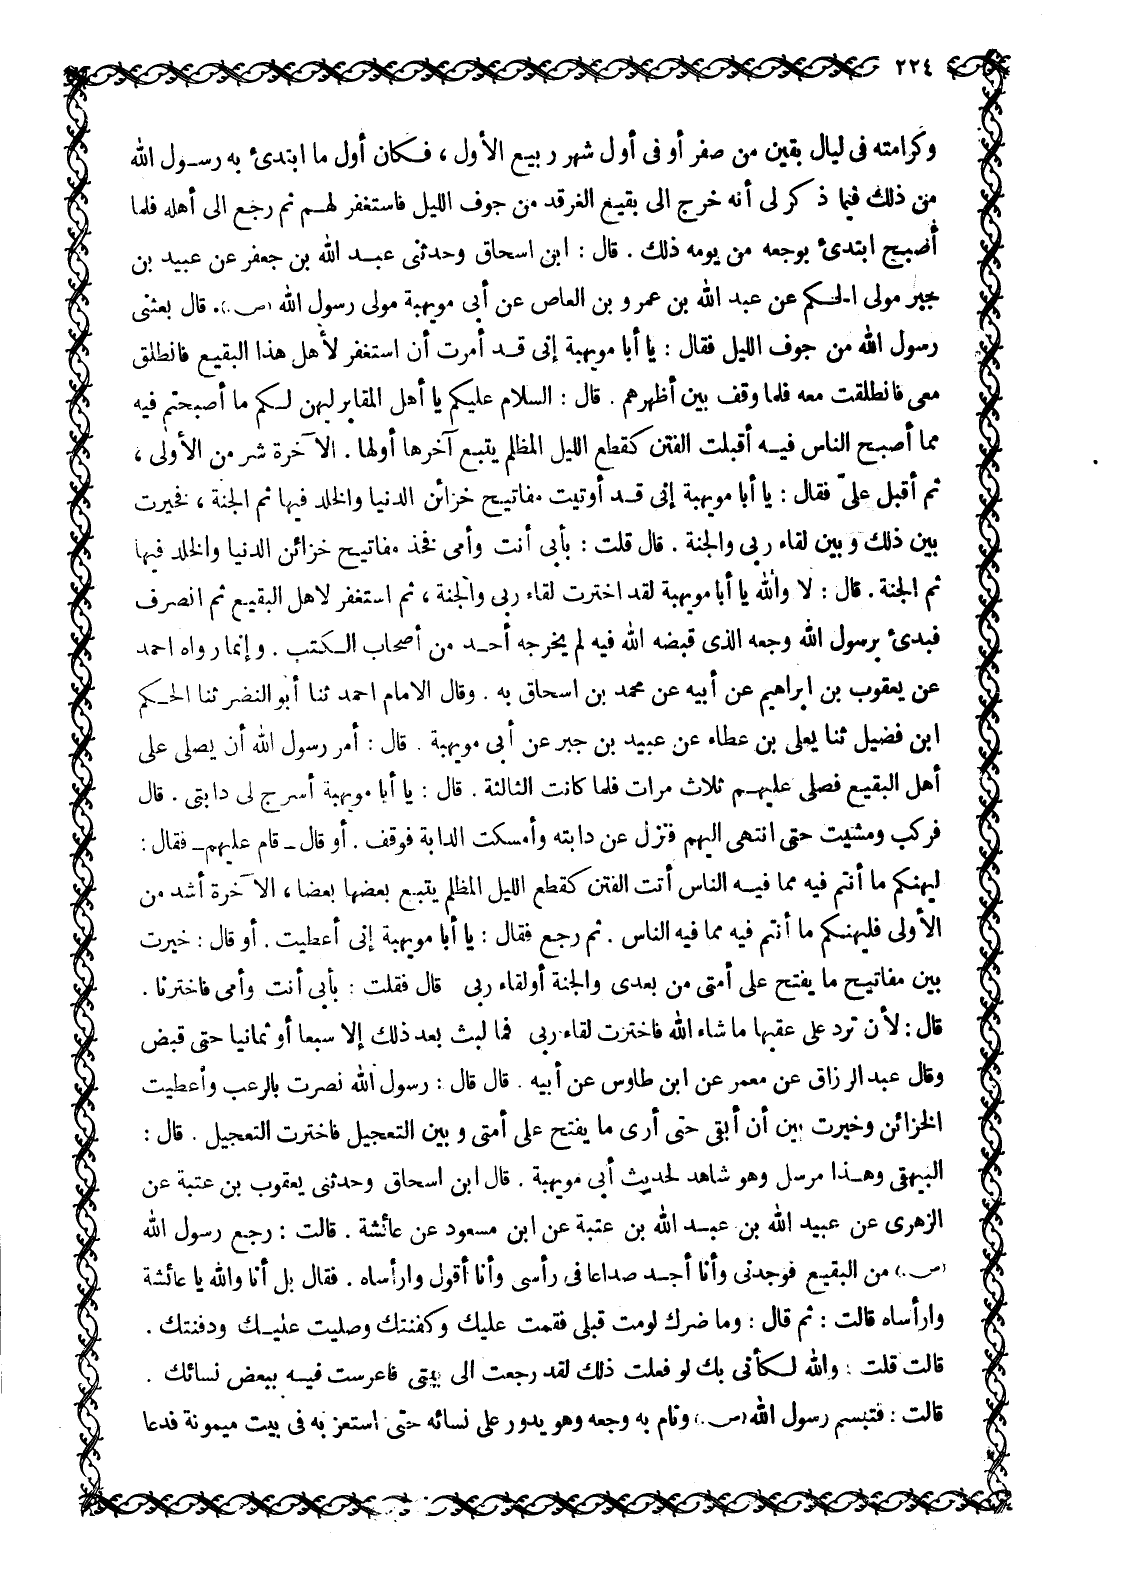 ٢٢٤
وكرامته فى ليال بقين من صفر أو فى أول شهر ربيع الأول ، فكان أول ما ابتدئ به رسول الله
من ذلك فيما ذكر لى أنه خرج الى بقيع الغرقد من جوف الليل فاستغفر لهم ثم رجع الى أهله فلما
أصبح ابتدئ بوجعه من يومه ذلك . قال : ابن اسحاق وحدثنى عبد الله بن جعفر عن عبيد بن
جبر مولى الحكم عن عبد الله بن عمرو بن العاص عن أبى مويهبة مولى رسول الله (ص.). قال بعثنى
رسول الله من جوف الليل فقال : يا أبا مويهبة إنى قد أمرت أن استغفر لأهل هذا البقيع فانطلق
معى فانطلقت معه فلما وقف بين أظهرهم . قال : السلام عليكم يا أهل المقابر ليهن لكم ما أصبحتم فيه
مما أصبح الناس فيه أقبلت الفتن كقطع الليل المظلم يتبع آخرها أولها . الآخرة شر من الأولى ،
ثم أقبل علىّ فقال : يا أبا مويهبة إنى قد أوتيت مفاتيح خزائن الدنيا والخلد فيها ثم الجنة ، فخيرت
بين ذلك وبين لقاء ربى والجنة . قال قلت : بأبى أنت وأمى فخذ مفاتيح خزائن الدنيا والخلد فيها
ثم الجنة . قال : لا والله يا أبا مويهبة لقد اخترت لقاء ربى والجنة ، ثم استغفر لاهل البقيع ثم انصرف
فبدئ برسول الله وجعه الذى قبضه الله فيه لم يخرجه أحد من أصحاب الكتب . وإنما رواه احمد
عن يعقوب بن ابراهيم عن أبيه عن محمد بن اسحاق به . وقال الامام احمد ثنا أبو النضر ثنا الحكم
ابن فضيل ثنا يعلى بن عطاء عن عبيد بن جبر عن أبى مويهبة . قال : أمر رسول الله أن يصلى على
أهل البقيع فصلى عليهم ثلاث مرات فلما كانت الثالثة . قال : يا أبا مويهبة أسرج لى دابتى . قال
فركب ومشيت حتى انتهى اليهم فنزل عن دابته وأمسكت الدابة فوقف . أو قال ـ قام عليهم ـ فقال :
ليهنكم ما أنتم فيه مما فيه الناس أتت الفتن كقطع الليل المظلم يتبع بعضها بعضا ، الآخرة أشد من
الأولى فليهنكم ما أنتم فيه مما فيه الناس . ثم رجع فقال : يا أبا مويهبة إنى أعطيت . أو قال : خيرت
بين مفاتيح ما يفتح على أمتى من بعدى والجنة أو لقاء ربى قال فقلت : بأبى أنت وأمى فاخترنا .
قال : لأن ترد على عقبها ما شاء الله فاخترت لقاء ربى فما لبث بعد ذلك إلا سبعا أو ثمانيا حتى قبض
وقال عبد الرزاق عن معمر عن ابن طاوس عن أبيه . قال قال : رسول الله نصرت بالرعب وأعطيت
الخزائن وخيرت بين أن أبقى حتى أرى ما يفتح على أمتى وبين التعجيل فاخترت التعجيل . قال :
البيهقى وهذا مرسل وهو شاهد لحديث أبى مويهبة . قال ابن اسحاق وحدثنى يعقوب بن عتبة عن
الزهرى عن عبيد الله بن عبد الله بن عتبة عن ابن مسعود عن عائشة . قالت : رجع رسول الله
(ص.) من البقيع فوجدنى وأنا أجد صداعا فى رأسى وأنا أقول وارأساه . فقال بل أنا والله يا عائشة
وارأساه قالت : ثم قال : وما ضرك لومت قبلى فقمت عليك وكفنتك وصليت عليك ودفنتك .
قالت قلت : والله لكأنى بك لو فعلت ذلك لقد رجعت الى بيتى فاعرست فيه ببعض نسائك .
قالت : فتبسم رسول الله (ص.) ونام به وجعه وهو يدور على نسائه حتى استعز به فى بيت ميمونة فدعا